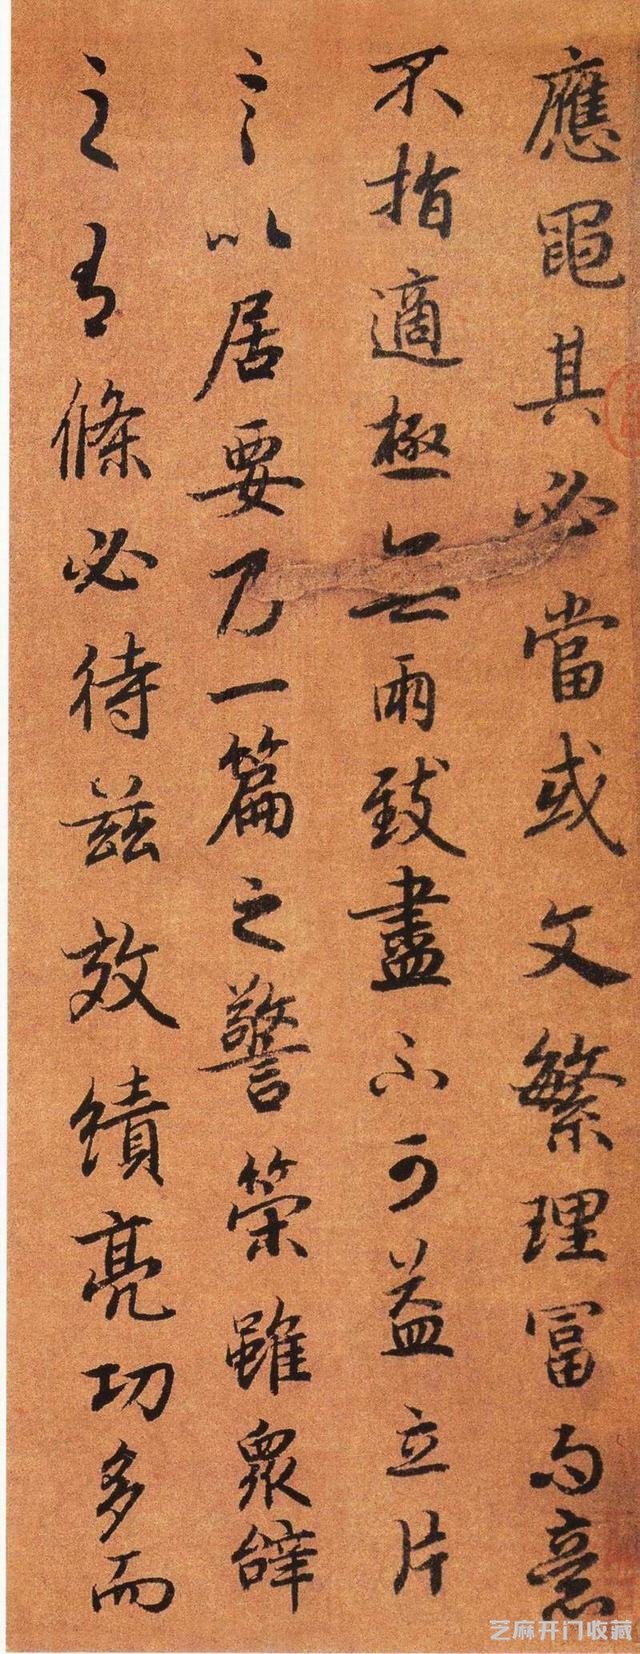 應黽其必當或文繁理富而意
不指適極無兩致盡不可益立片
言以居要乃一篇之警策雖眾辞
之有條必待茲效績亮功多而
芝麻开门收藏